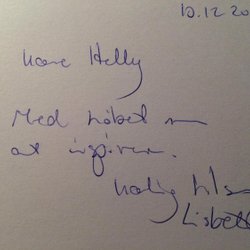 10.12.20
Kære Helly
Med håbet om
at inspirere.
Kærlig hilsen
Lisbett